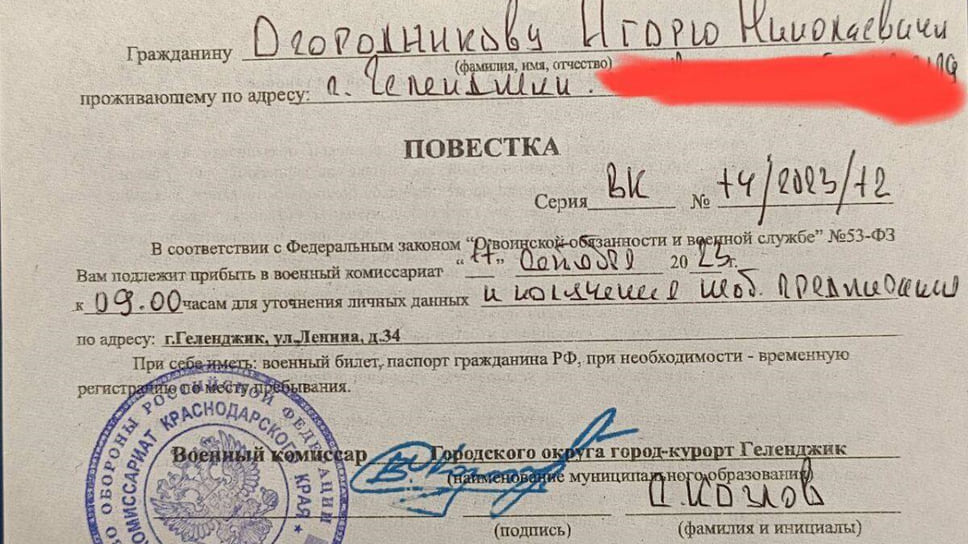 Гражданину Огородникову Игорю Николаевичу
(фамилия, имя, отчество)
проживающему по адресу: г. Геленджик.
ПОВЕСТКА
Серия ВК № 14/2023/12
В соответствии с Федеральным законом "О воинской обязанности и военной службе" №53-ФЗ
Вам подлежит прибыть в военный комиссариат "11" 2023г.
к 09.00 часам для уточнения личных данных и получения моб. предписания
по адресу: г.Геленджик, ул.Ленина, д.34
При себе иметь: военный билет, паспорт гражданина РФ, при необходимости - временную
регистрацию по месту пребывания.
Военный комиссар Городского округа город-курорт Геленджик
(наименование муниципального образования)
Козлов
(подпись) (фамилия и инициалы)
ОБОРОНЫ РОССИЙСКОЙ ФЕДЕРАЦИИ
КОМИССАРИАТ КРАСНОДАРСКОГО КРАЯ